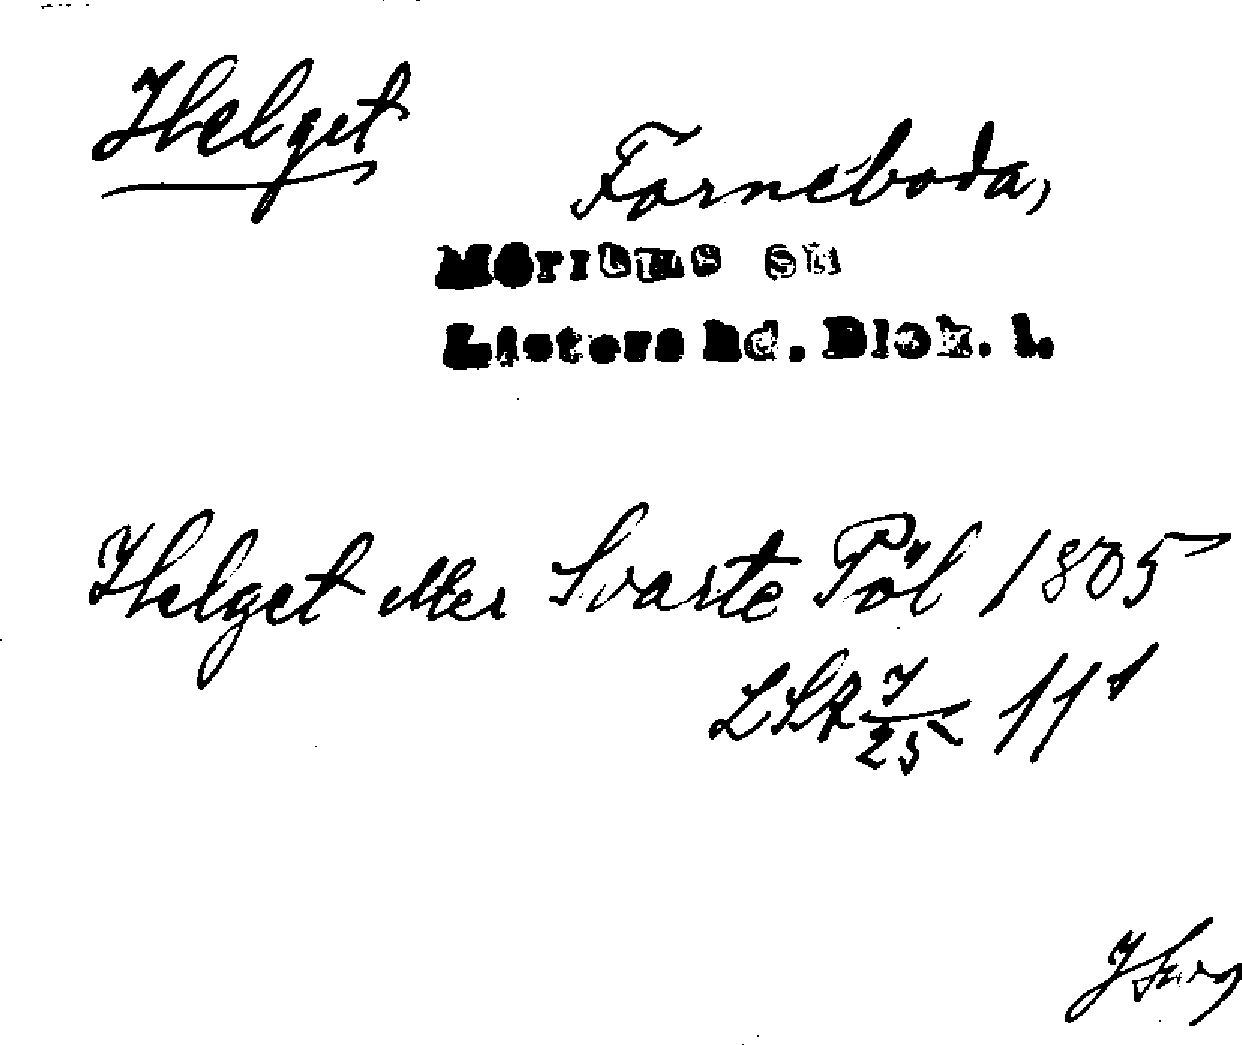 Helget
Farneboda,
Mörrums sn
Listers hd. Blek. l.
Helget eller Svarte Pöl 1805
LSA 7/25 11